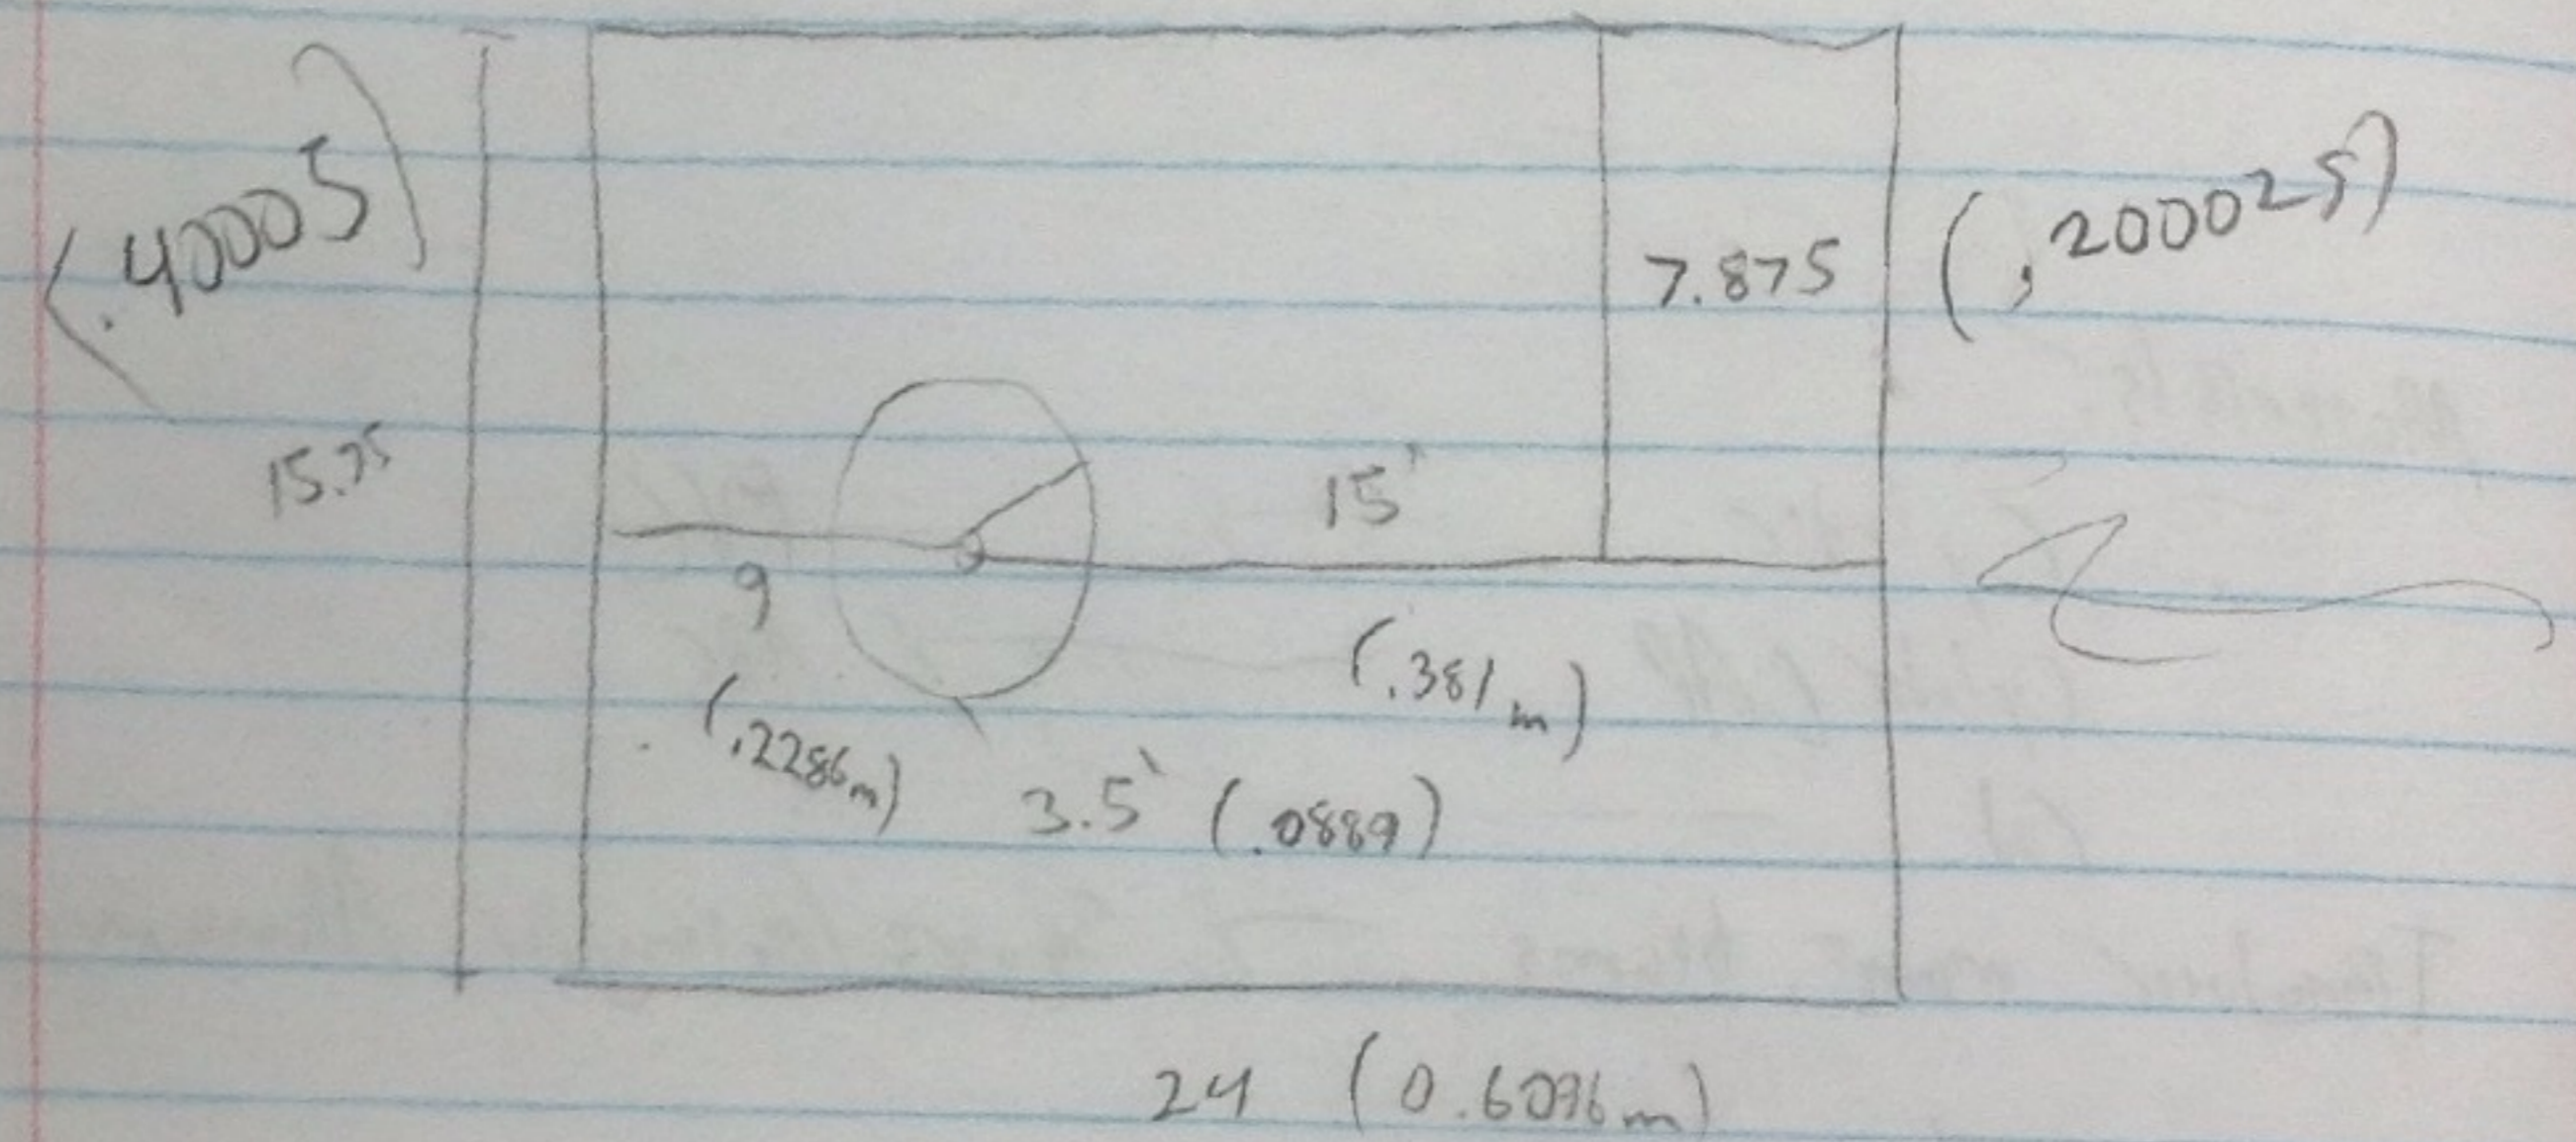 (.40005)
7.875
(.200025)
15.75
15'
9
(.381m)
(.2286m)
3.5' (.0889)
24 (0.6096m)